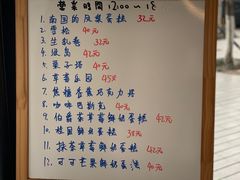 營業時間 12:00~18
1. 南国的鳳梨蛋糕 32元
2. 雪松 40元
3. 生乳卷 32元
4. 綠島 42元
5. 栗子塔 40元
6. 草莓乐园 45元
7. 焦糖香蕉巧克力塔
8. 咖啡巴斯克 40元
9. 伯爵茶草莓鮮奶蛋糕 42元
10. 桂圓鮮奶蛋糕 38元
11. 抹茶草莓鮮奶蛋糕 42元
12. 可可芒果鮮奶蛋糕 40元